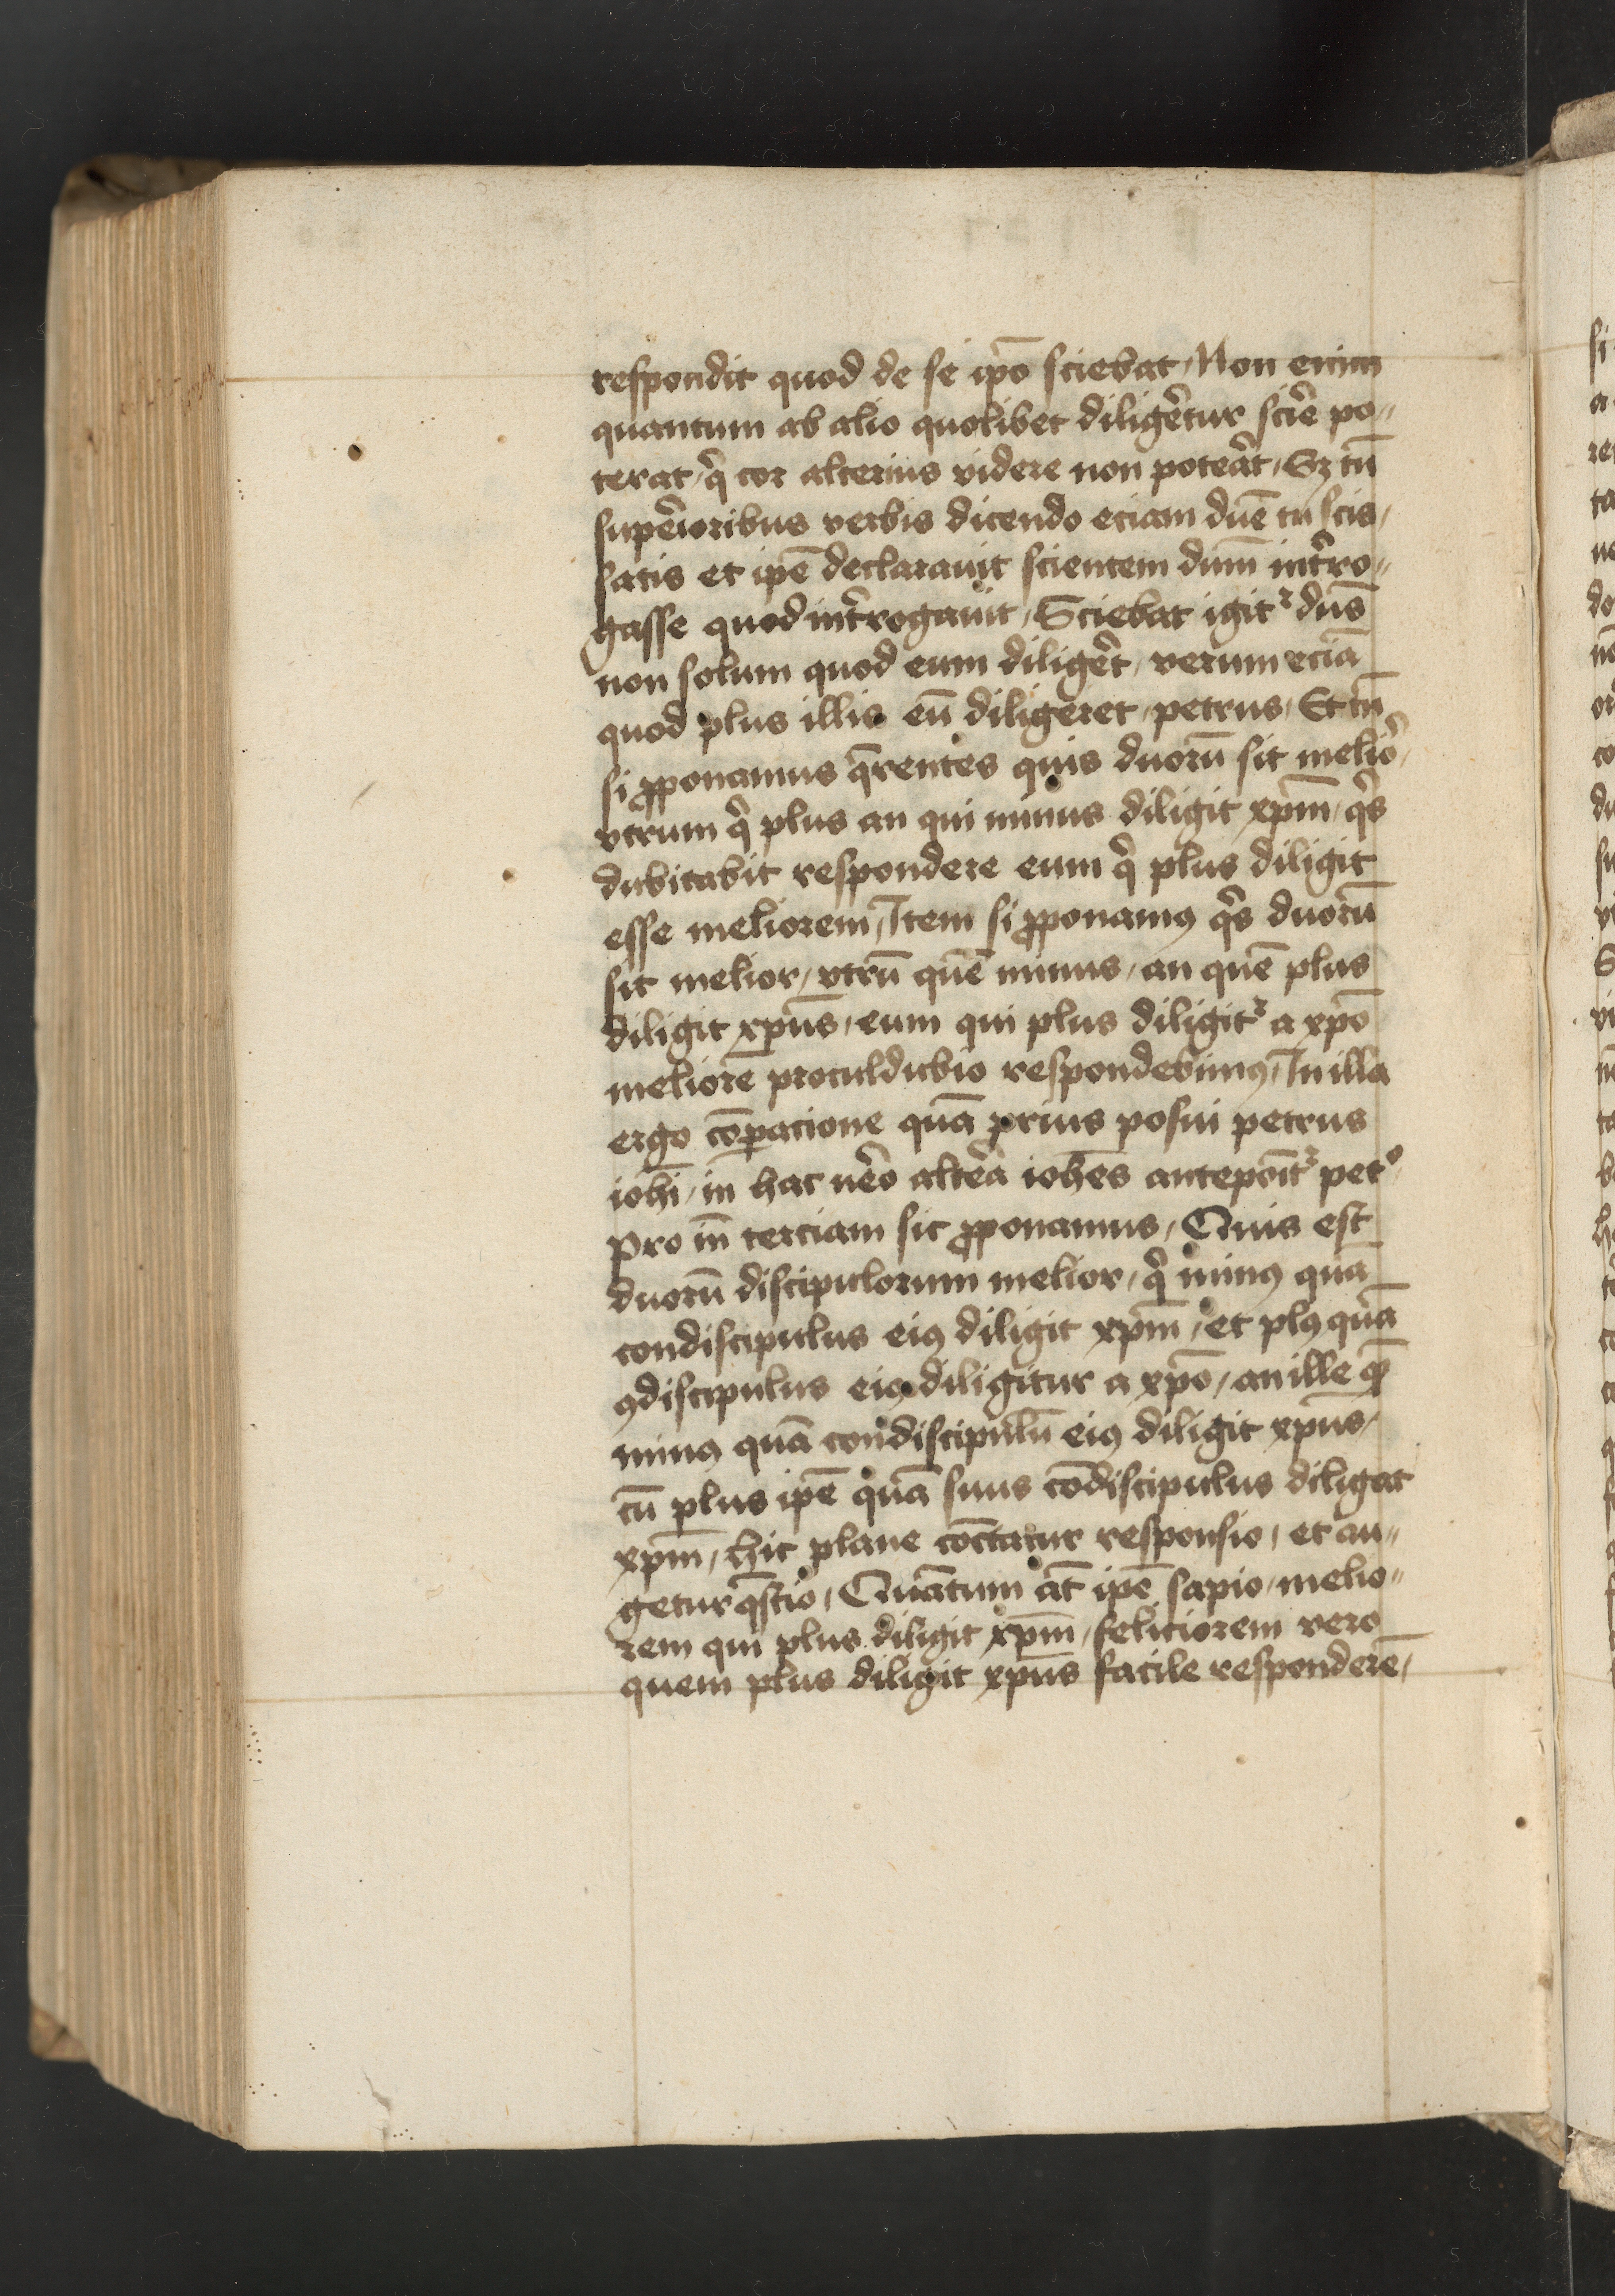 respondit quod de se ip̄o sciebat / Non enim
quantum ab alio quolibet diliger̄tur scir̄e po〃
terat / qͥ cor alterius videre non poter̄at / Sꝫ tn̄
super̄ioribus verbis dicendo eciam dn̄e tu scis /
satis et ip̄e declarauit scientem dn̄m int̄ro〃
gasse quod int̄rogauit / Sciebat igitᷣ dn̄s
non solum quod eum diliger̄t / verum eciā
quod plus illis eū diligeret / petrus / Et tn̄
si ꝓponamus q̄rentes quis duorū sit melior /
vtrum qͥ plus an qui minus diligit xp̄m / qͥs
dubitabit respondere eum qͥ plus diligit
esse meliorem / Item si ꝓponamꝯ qͥs duorū
sit melior / vtrū quē minus / an quē plus
diligit xp̄us / eum qui plus diligitᷣ a xp̄o
meliorē proculdubio respondebimꝯ / In illa
ergo cōꝑacione quā prius posui petrus
ioh̄i / in hac uēo altēa ioh̄es anteponit᷑ petͦ /
Pro in̄ terciam sic ꝓponamus / Quis est
duorū discipulorum melior / qͥ minꝯ quā
condiscipulus eiꝯ diligit xp̄m / et plꝯ quā
ꝯdiscipulus eiꝯ diligitur a xp̄o / an ille qͣ̄
minꝯ quā condiscipulū eiꝯ diligit xp̄us /
cū plus ip̄e quā suus cōdiscipulus diligat
xp̄m / hic plane cōctatur responsio / et au〃
getur q̄stio / Quātum āt ip̄e sapio / melio〃
rem qui plus diligit xp̄m / feliciorem vero
quem plus diligit xp̄us facile responderē /